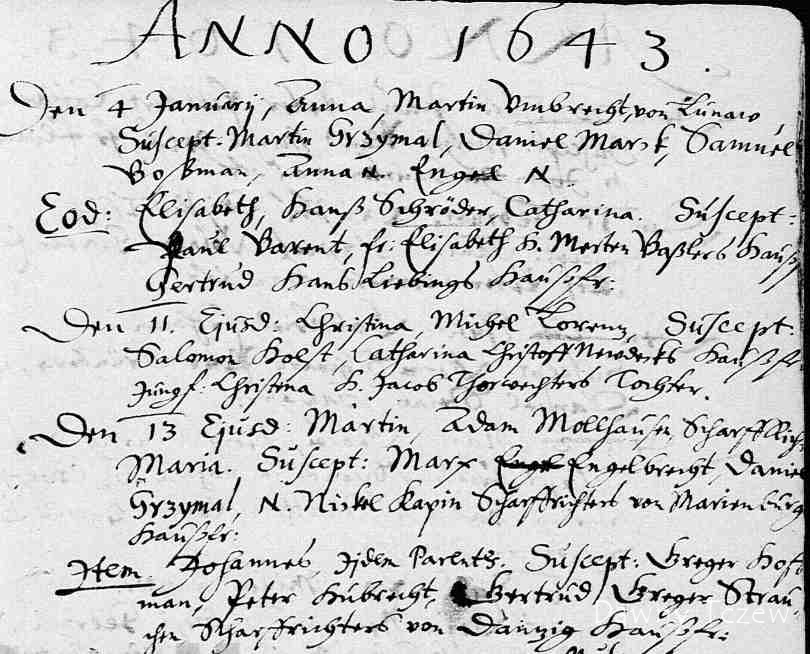 ANNO 1643.
Den 4 Januarij, Anna, Martin Umbrecht, von Lunaw
Suscept. Martin Grzymal, Daniel Marx, Samuel
Boßman, Anna N. Engel N.
Eod: Elisabeth, Hanß Schröder, Catharina. Suscept:
Paul Barent, fr: Elisabeth H. Merten Baßlers Hauß
Gertrud Hans Liebings Haußfr:
Den 11. Ejusd: Christina, Michel Lorenz, Suscept.
Salomon Holst, Catharina Christoff Newdecks Haußfr
Jungf: Christena H. Jacob Thorwechters Tochter.
Den 13 Ejusd: Martin, Adam Mollhausen, Scharffrich
Maria. Suscept: Marx Engelbrecht, Daniel
Grzymal, N. Nickel Kapin Scharffrichters von Marienburg
Haußfr:
Item Johannes, Ijdem Parents. Suscept: Greger Hoff
man, Peter Hubrecht, Gertrud, Greger Strau
chen Scharffrichters von Danzig Haußfr:
Dawny Tczew